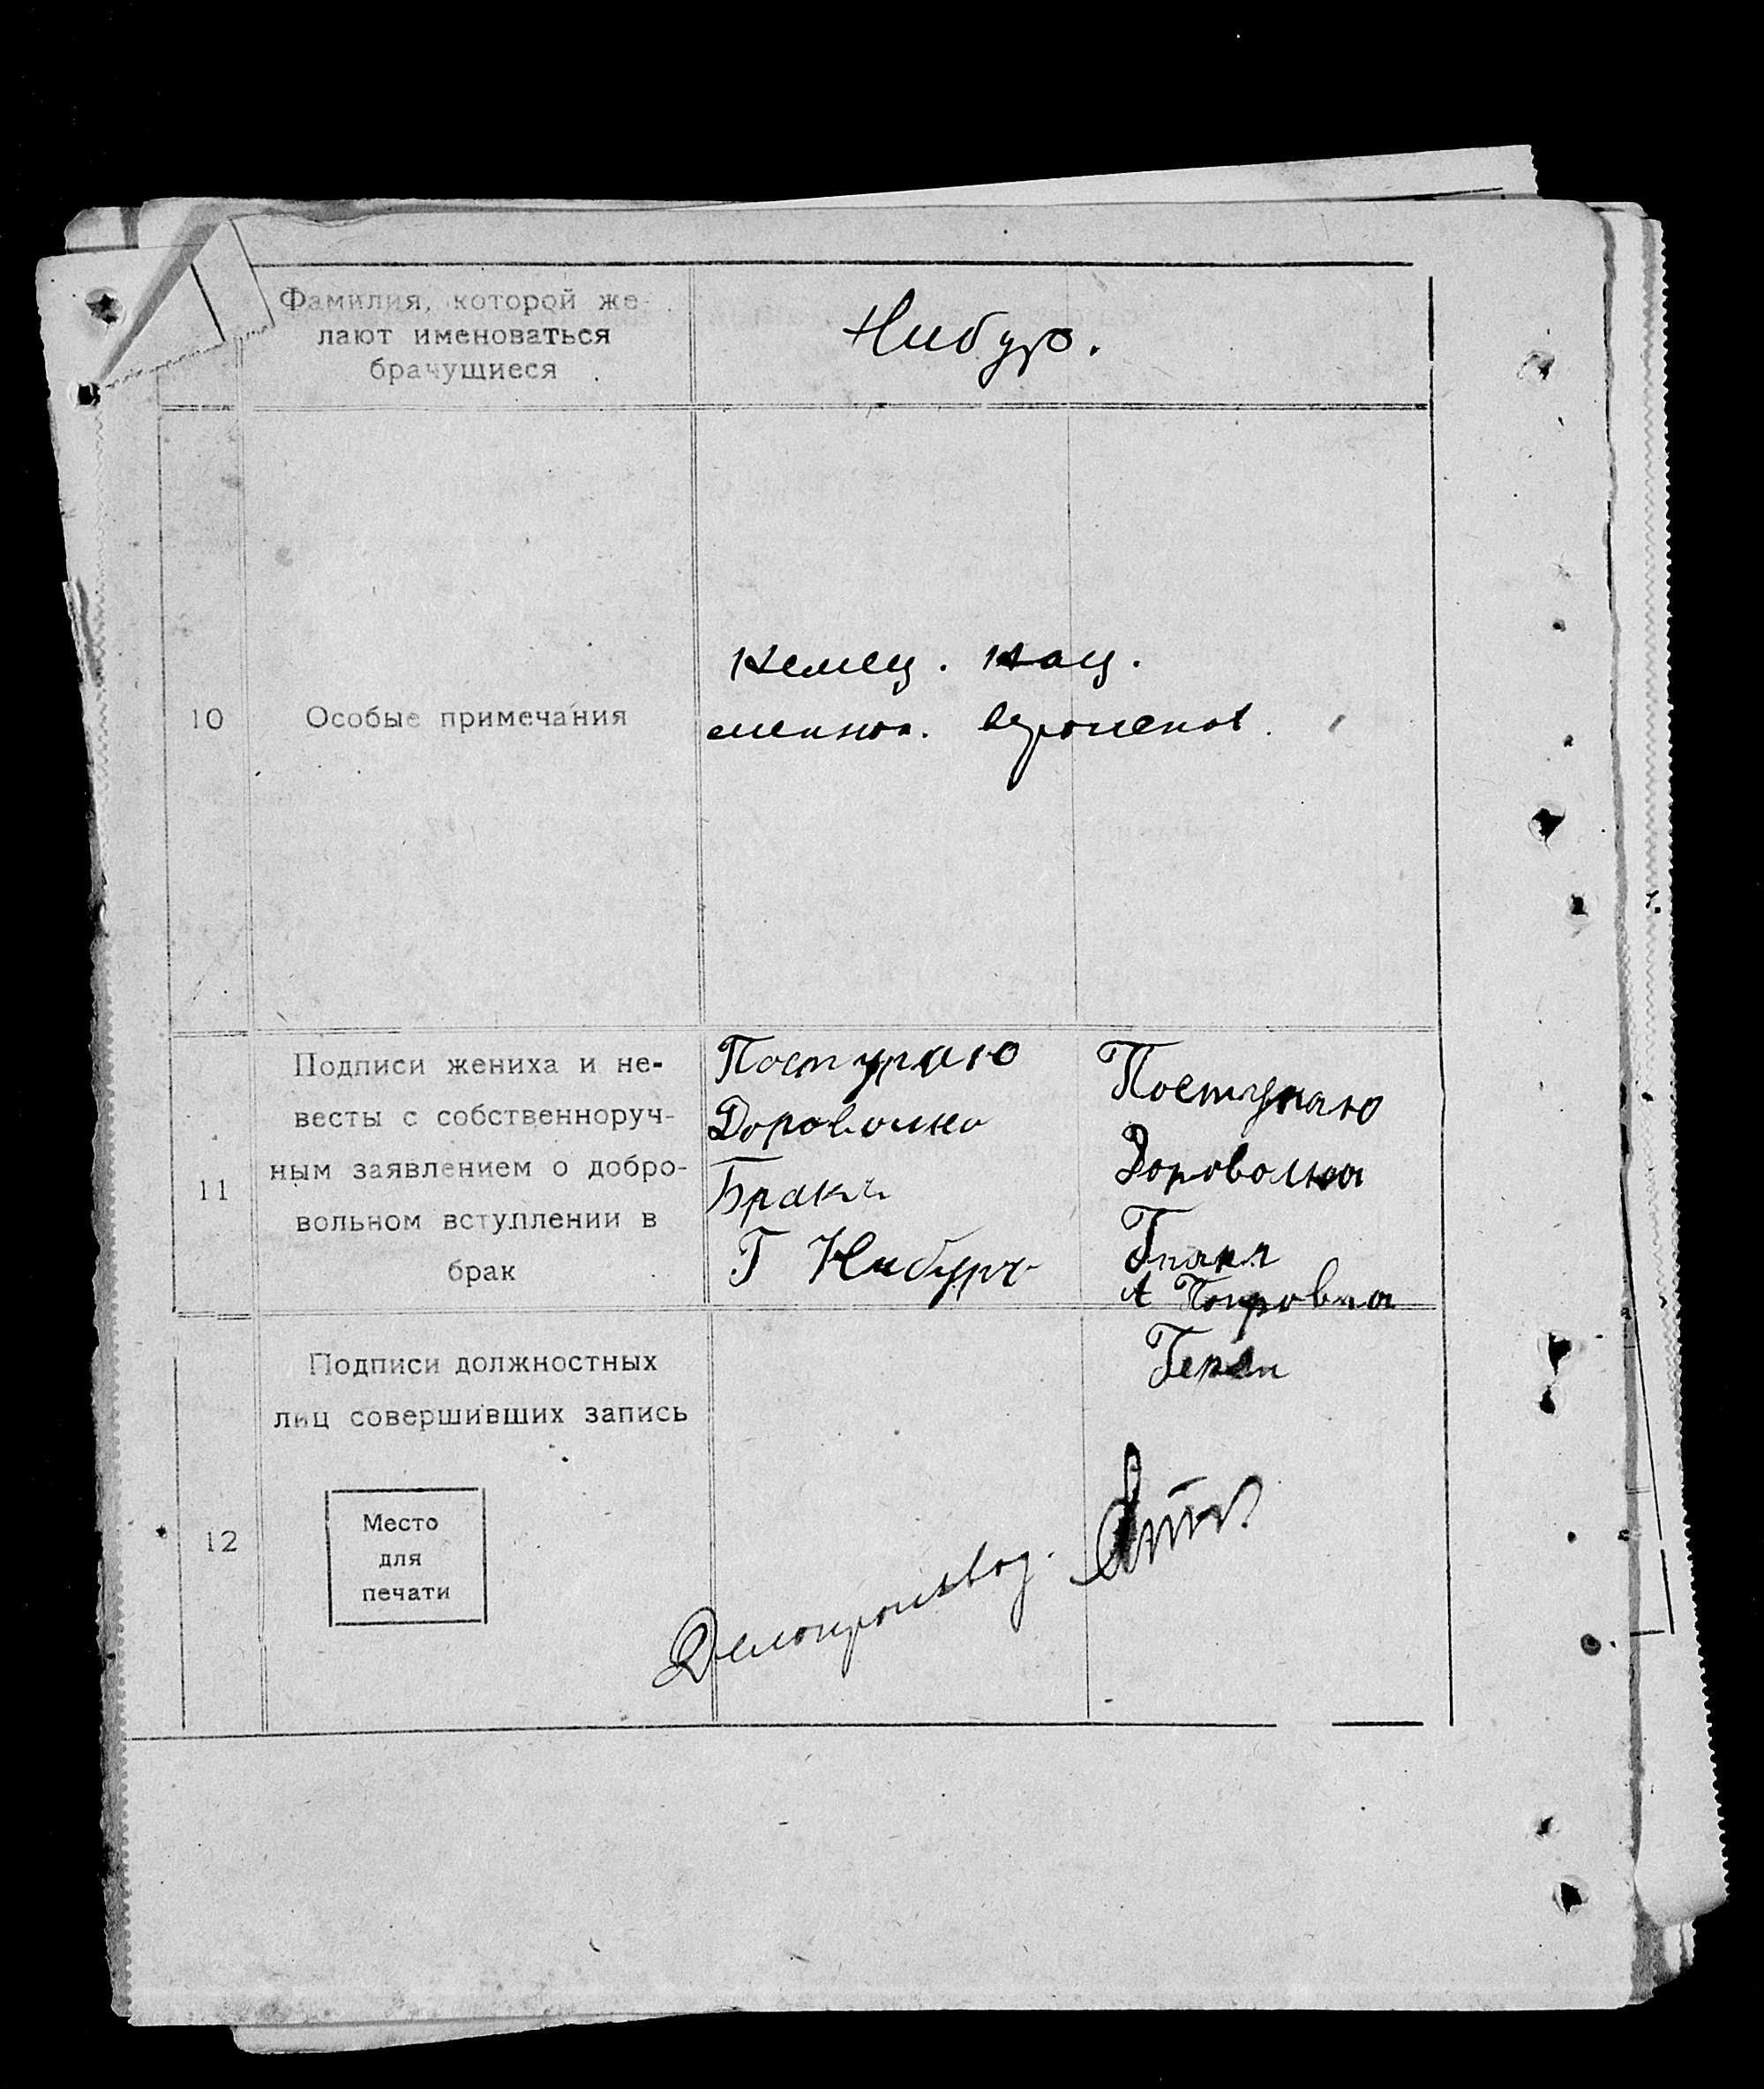 Фамилия, которой же-
лают именоваться
брачущиеся
Нибур.
10
Особые примечания
Немец. нац.
меннон. вероисповед.
11
Подписи жениха и не-
весты с собственноруч-
ным заявлением о добро-
вольном вступлении в
брак
Поступаю
Доровольно
Бракъ
Г Нибуръ
Поступаю
Дороволна
А
Герен
12
Подписи должностных
лиц совершивших запись
Место
для
печати
Делопроизвод.